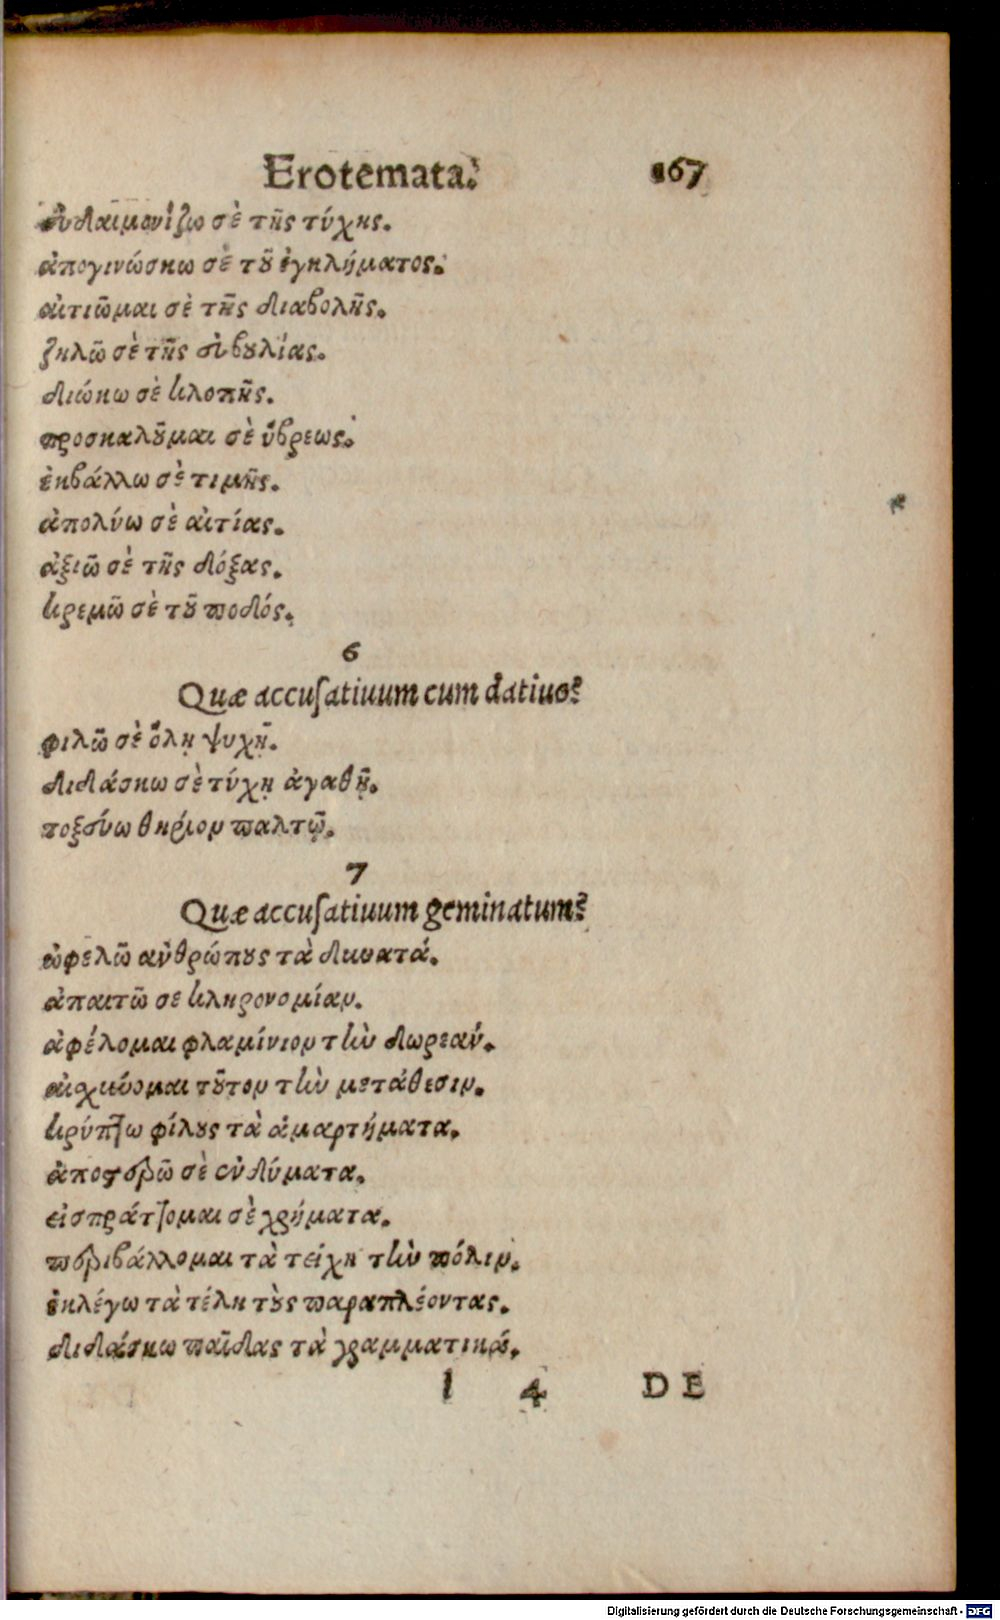 Erotemata. 167
εὐδαιμονίζω σὲ τῆς τύχης.
ἀπογινώσκω σὲ τοῦ ἐγκλήματος.
αἰτιῶμαι σὲ τῆς διαβολῆς.
ζηλῶ σὲ τῆς εὐβουλίας.
διώκω σὲ κλοπῆς.
προσκαλοῦμαι σὲ ὕβρεως.
ἐκβάλλω σὲ τιμῆς.
ἀπολύω σὲ αἰτίας.
ἀξιῶ σὲ τῆς δόξας.
κρεμῶ σὲ τοῦ ποδός.
6
Quæ accuſatiuum cum datiuo?
φιλῶ σὲ ὅλῃ ψυχῇ.
διδάσκω σὲ τύχῃ ἀγαθῇ.
τοξεύω θηρίον παλτῷ.
7
Quæ accuſatiuum geminatum?
ὠφελῶ ἀνθρώπους τὰ δυνατά.
ἀπαιτῶ σε κληρονομίαν.
ἀφέλομαι φλαμίνιον τὴν δωρεάν.
αἰσχύνομαι τοῦτον τὴν μετάθεσιν.
κρύπτω φίλους τὰ ἁμαρτήματα.
ἀποστερῶ σὲ ἐνδύματα.
εἰσπράττομαι σὲ χρήματα.
περιβάλλομαι τὰ τείχη τὴν πόλιν.
ἐκλέγω τὰ τέλη τοὺς παραπλέοντας.
διδάσκω παῖδας τὰ γραμματικά.
l 4 DE
Digitalisierung gefördert durch die Deutsche Forschungsgemeinschaft - DFG